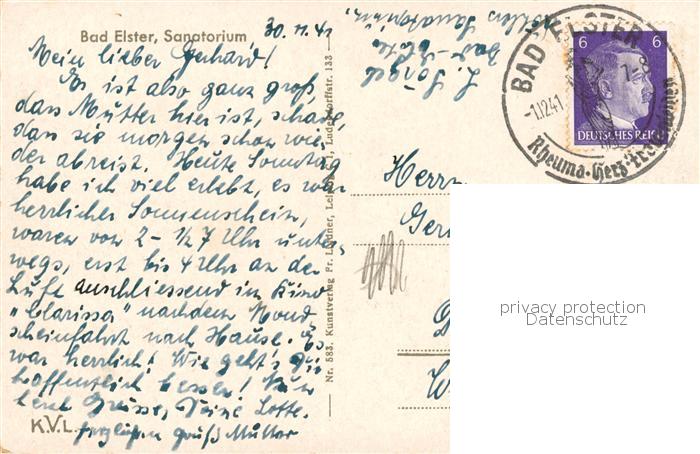 Bad Elster, Sanatorium
30.11.41
Mein lieber Gerhard!
Es ist also ganz groß,
dass Mutter hier ist, schade,
dass sie morgen schon wie-
der abreist. Heute Sonntag
habe ich viel erlebt, es war
herrlicher Sonnenschein,
waren von 2 - ½7 Uhr unter-
wegs, erst bis 4 Uhr an der
Luft anschliessend in Kino
"Clarissa" nachdem Mond
scheinfahrt nach Hause. Es
war herrlich! Wie geht's Dir
hoffentlich besser!
Grüsse, Deine Lotte.
Gruß Mutter
K.V.L.
Nr. 583. Kunstverlag Fr. Lindner, Leipzig C 1, Ludendorffstr. 133
Bad Elster
Sanatorium
BAD ELSTER
-1.1241
Rheuma·Herz·
6 6
DEUTSCHES REICH
Herrn
privacy protection
Datenschutz